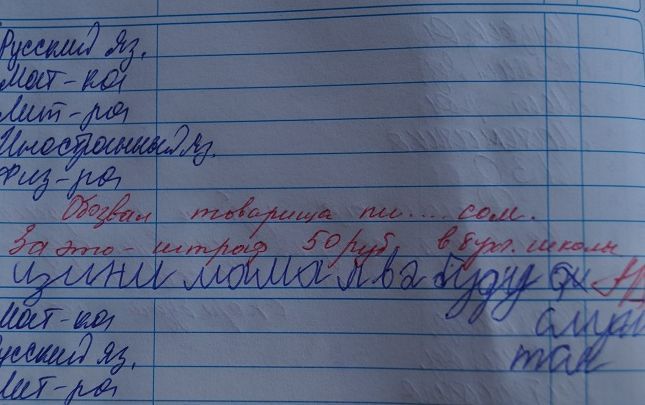 Русский яз.
Мат-ка
Лит-ра
Иностранный яз.
Физ-ра
Обозвал товарища пи....сом.
За это - штраф 50 руб. в бухг. школы
изини мама я ба буду
Мат-ка
Русский яз.
так
Лит-ра